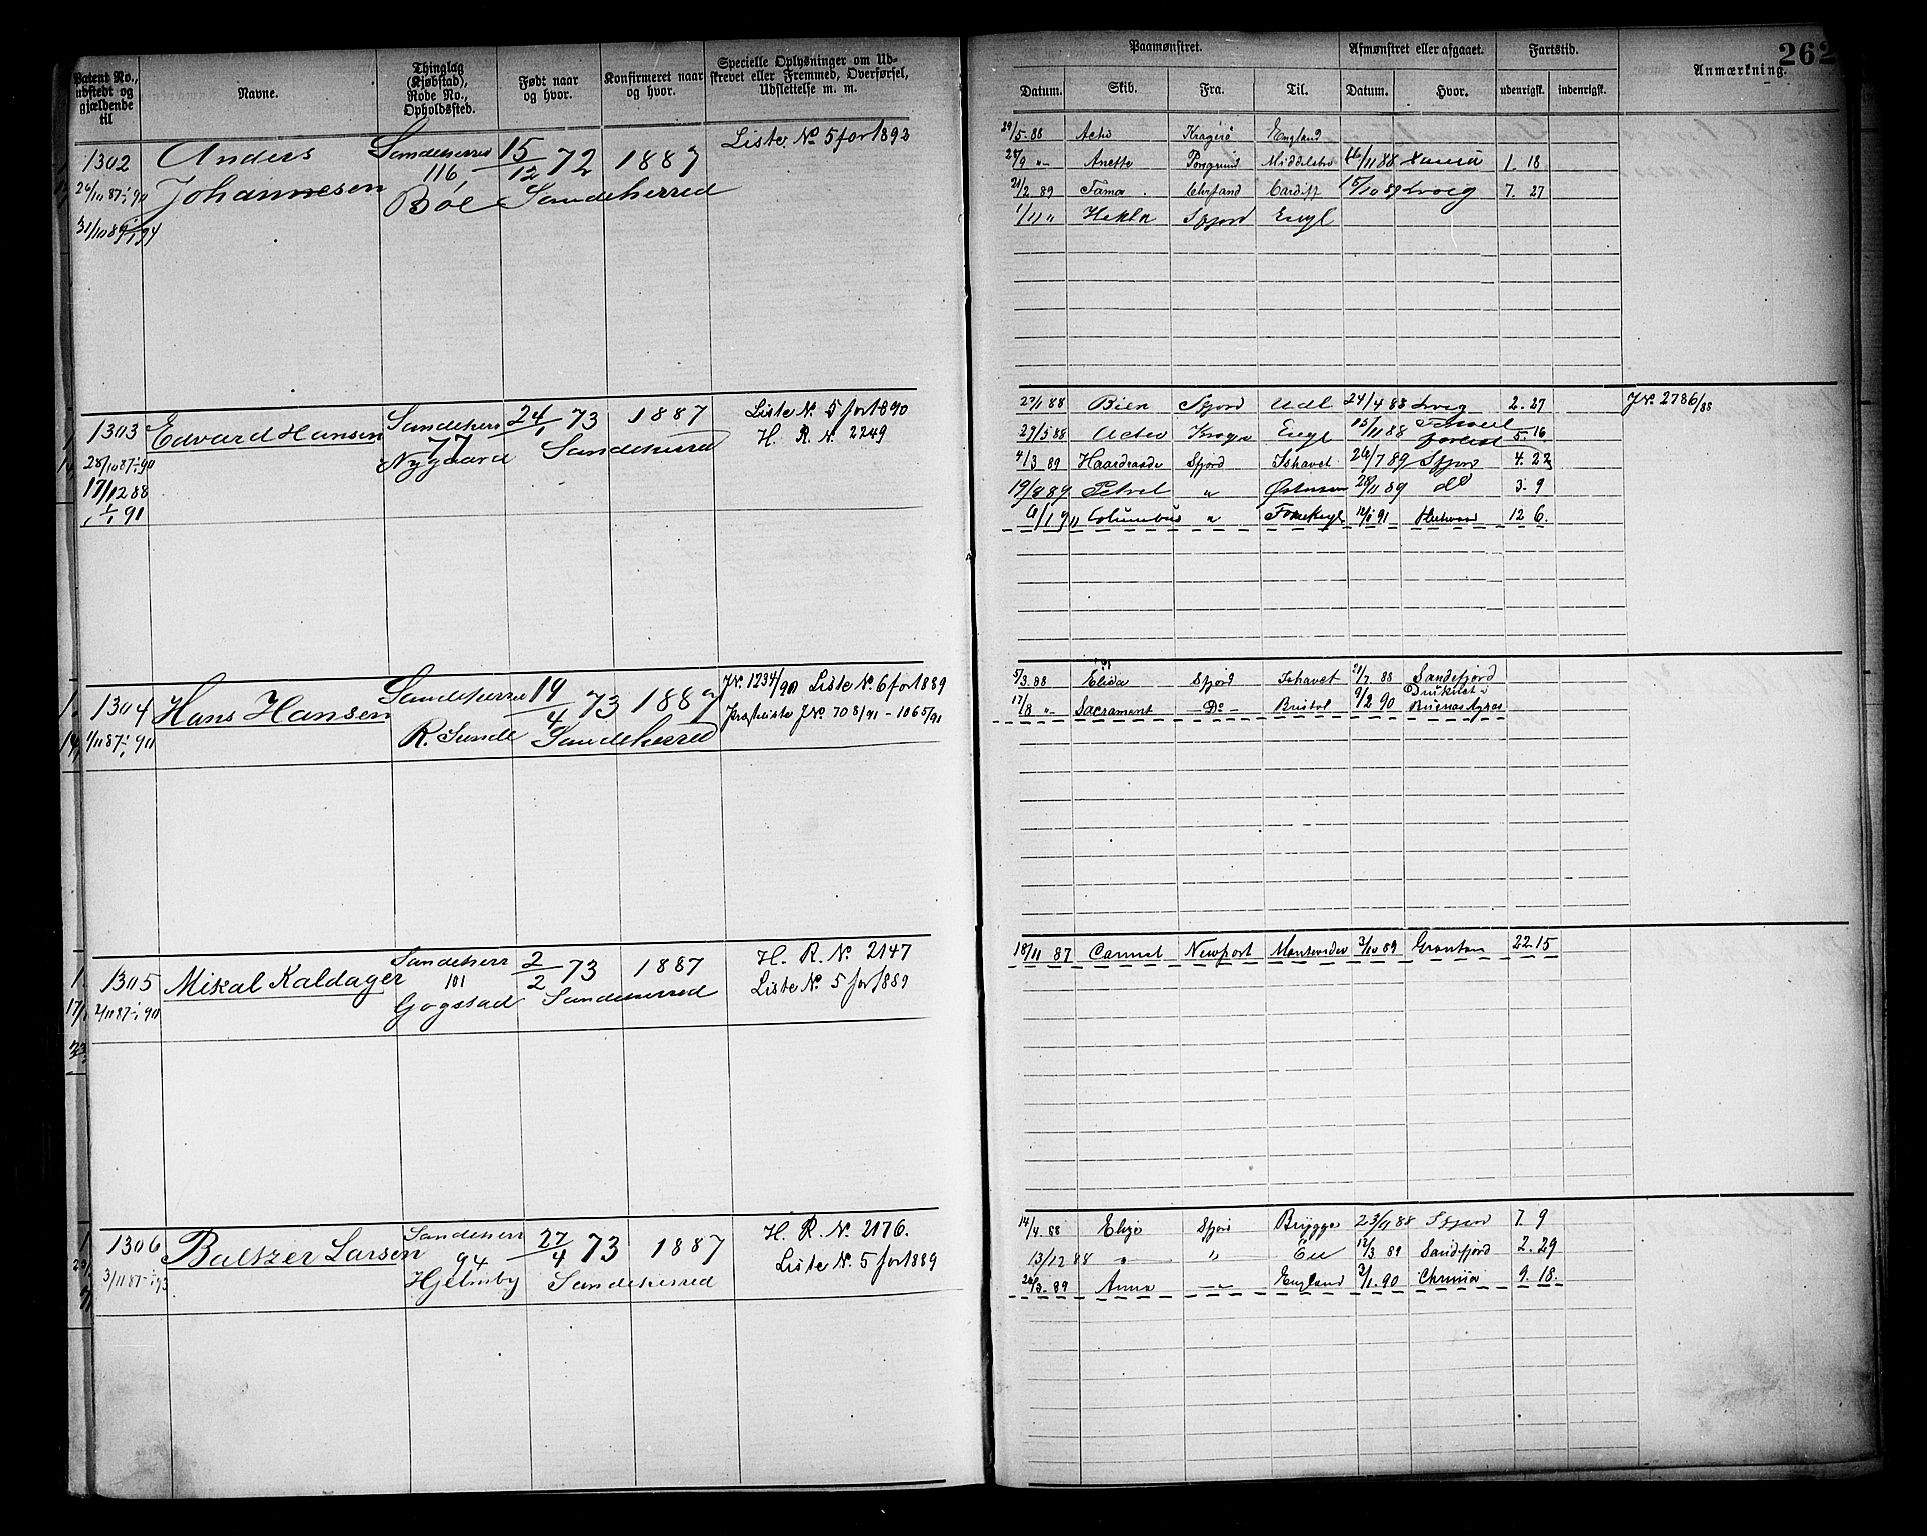 262
Patent No., udstedt og gjældende til
Navne.
Thinglag (Kjøbstad), Rode No., Opholdssted.
Født naar og hvor.
Konfirmeret naar og hvor.
Specielle Oplysninger om Udskrevet eller Fremmed, Overførsel, Udslettelse m. m.
Paamønstret.
Afmønstret eller afgaaet.
Fartstid.
Anmærkning.
Datum. Skib. Fra. Til. Datum. Hvor. udenrigsk. indenrigsk.
1302 Anders Johannesen
Sandeherred 116 Bøe
15/12 72 1887 Sandeherred
Liste No 5 for 1893
29/5-88 Activ Kragerø England
27/9 " Anette Porsgrund Middelsbro 1. 18
21/2 89 Fama Chrsand Cardiff 15/10 89 Lvvig 7. 27
1/11 " Hekla Sfjord Engl
1303 Edvard Hansen
28/10 87-1/1 90
17/12 88
1/1 91
Sandeherr 77 Nygaard
24/1 73 1887 Sandeherred
Liste No 5 for 1890
H. R. No 2249
Bien Sfjord Udl 24/4 88 Lvvig 2. 27
JNo 2786/88
29/5 88 Activ Kragrø Engl 13/11 88 forlist 5. 16
4/3 89 Haardraade Sfjord Ishavet 26/7 89 Sfjord 4. 22
19/8 89 Petrel " Østersøen 28/11 89 do 3. 9
Columbus " 12/1 91 12 6.
1304 Hans Hansen
1/11 87-1/1 90
Sandeherred R. Sunde
19/4 73 1887 Sandeherred
JNo 1234/90 Liste No 6 for 1889
JNo 708/91 - 1065/91
5/3 88 Elida Sfjord Ishavet 21/7 88 Sandefjord
17/8 " Sacrament Do Bristol 9/2 90 Druknet i Buenos Ayres
1305 Mikal Kaldager
2/11 87-1/1 90
Sandeherr 101 Gogstad
2/2 73 1887 Sandeherred
H. R. No. 2147
Liste No 5 for 1889
18/11 87 Carmel Newport Montevideo 3/10 89 Granton 22. 15
1306 Baltzer Larsen
3/11 87-1/1 93
Sandeherr 94 Hjelmby
27/4 73 1887 Sandeherred
H. R. No. 2176.
Liste No 5 for 1889
14/4 88 Eliza Sfjord Brügge 23/11 88 Sfjord 7. 9
13/12 88 " " 12/3 89 Sandefjord 2. 29
26/3-89 Anna " England 3/1. 90 Chrnia 9. 18.